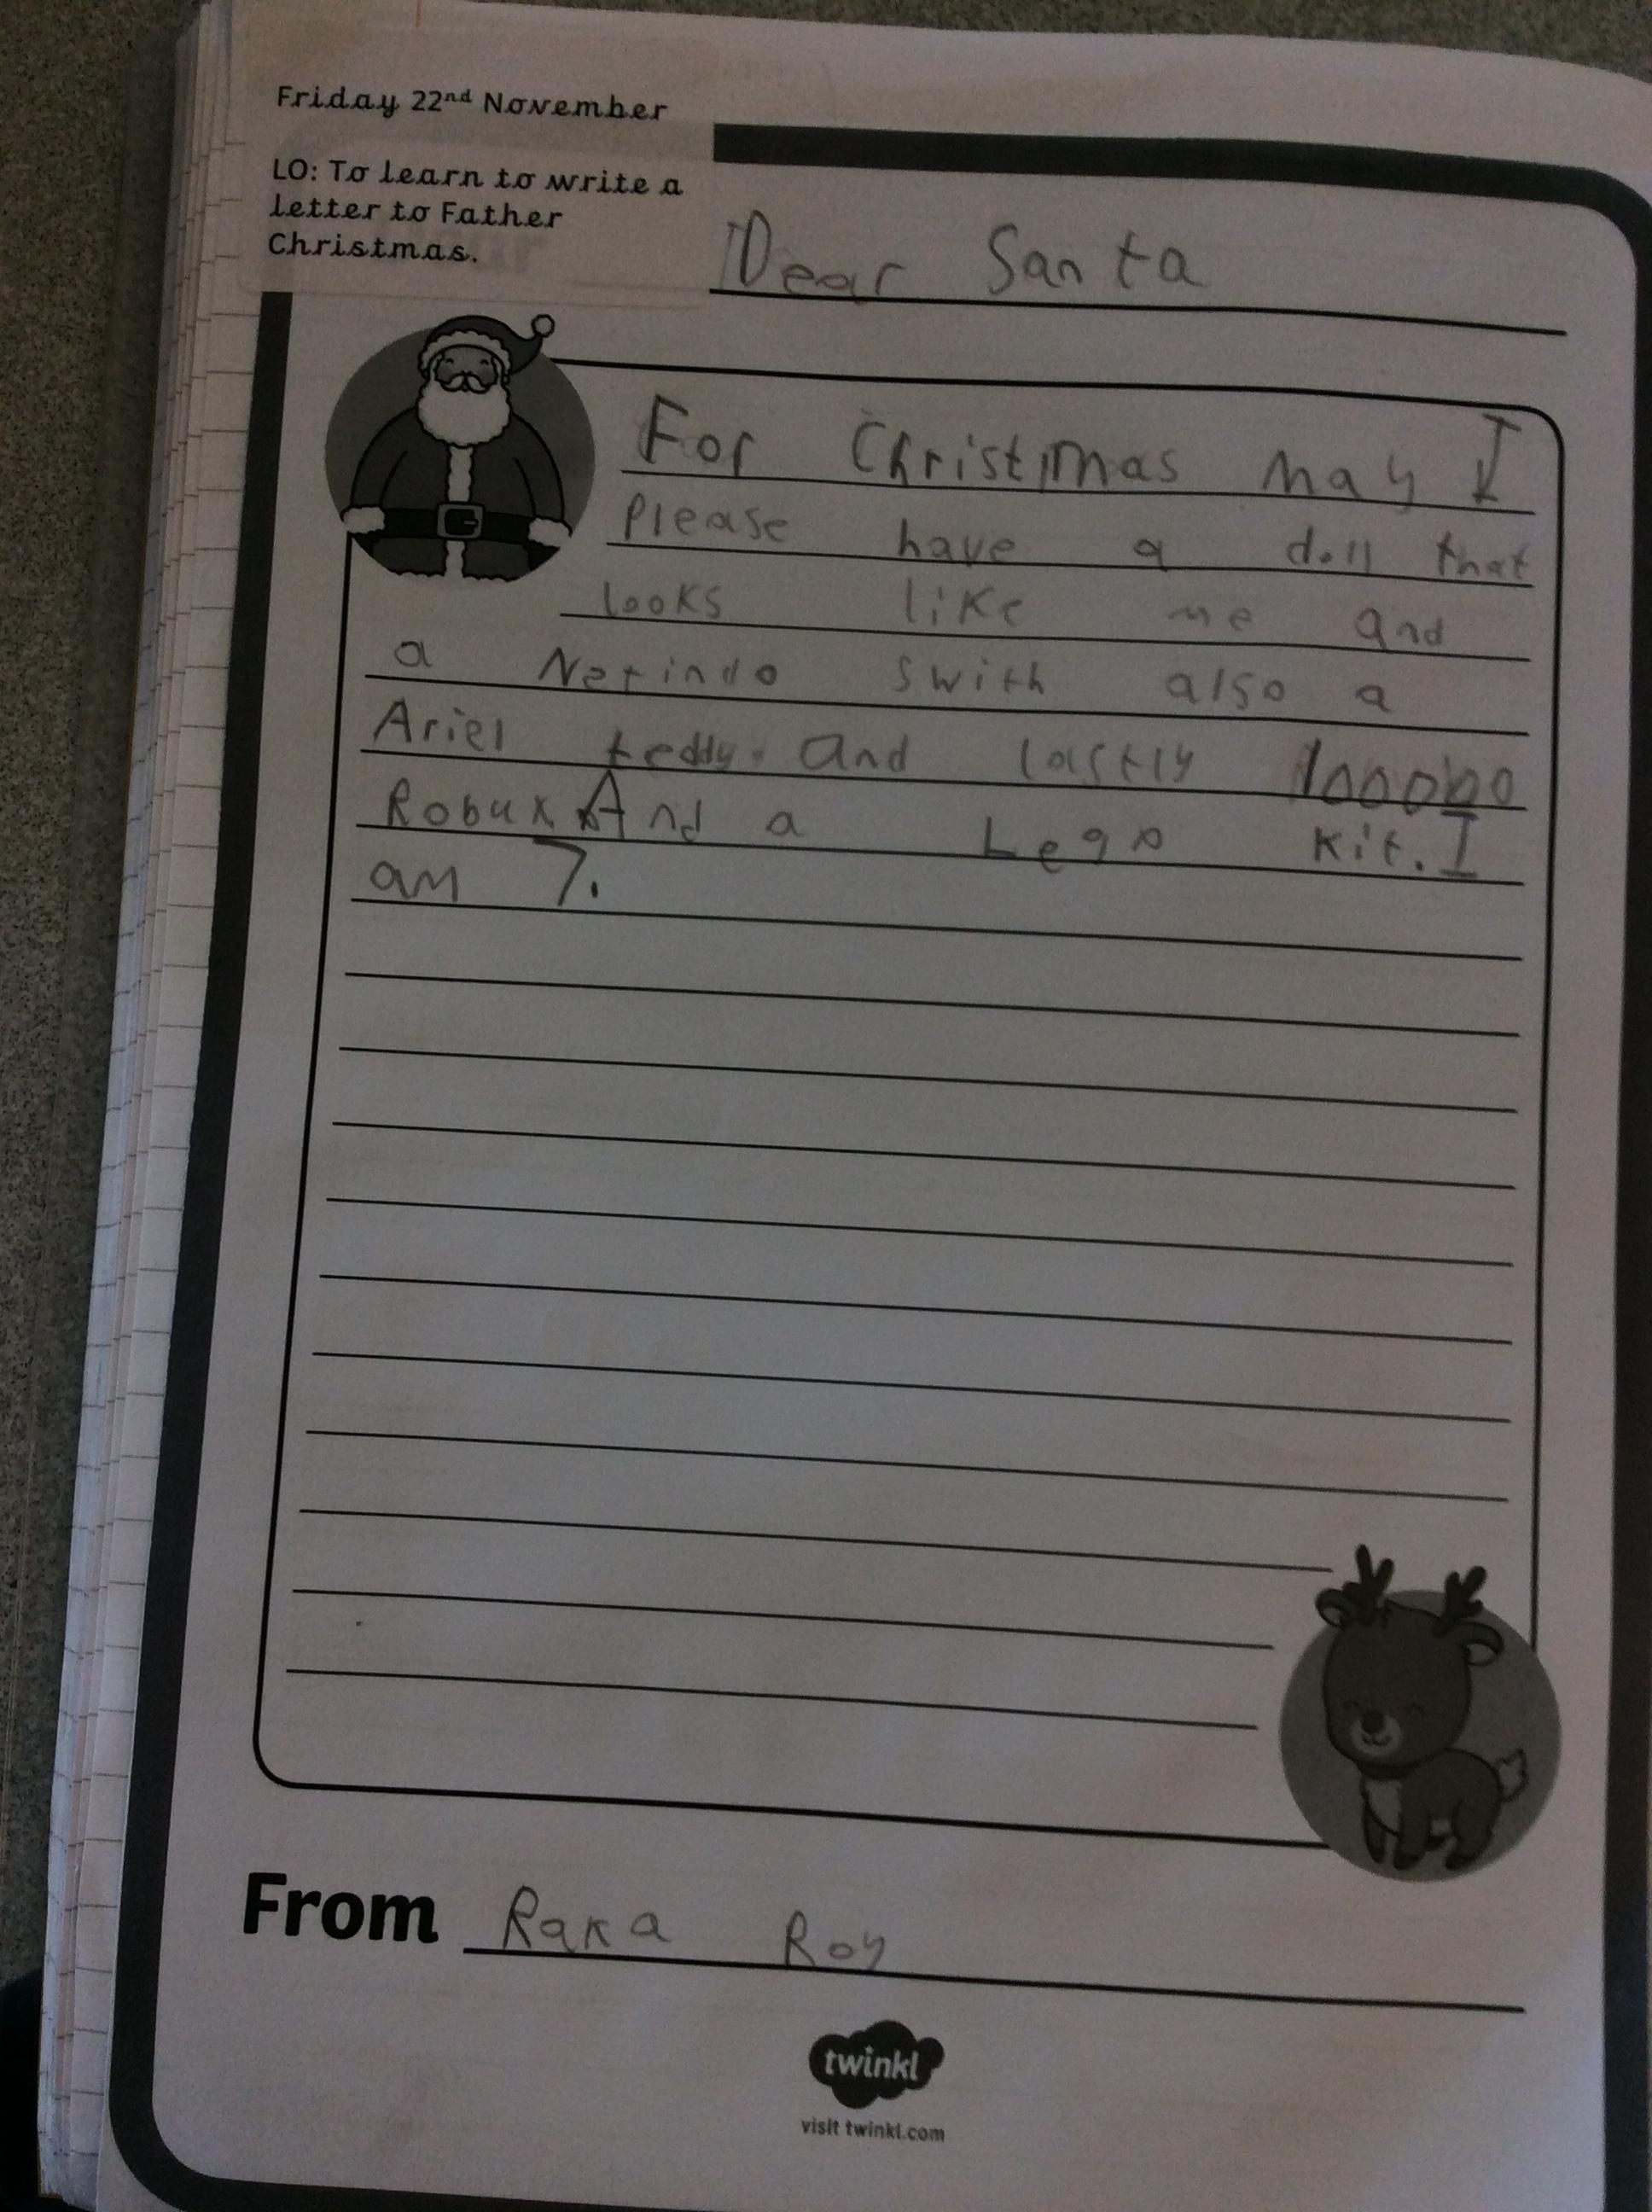 Friday 22nd November
LO: To learn to write a
letter to Father
Christmas.
Dear Santa
For Christmas may I
Please have a doll that
looks like me and
a Netindo swith also a
Ariel teddy. and lastly 100000
Robux And a Lego kit. I
am 7.
From Raka Roy
twinkl
visit twinkl.com